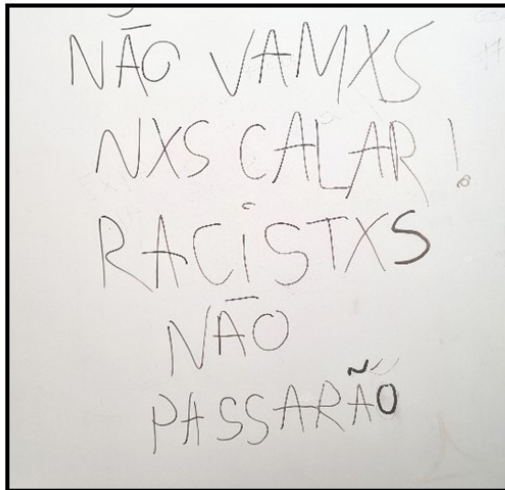 NÃO VAMXS
NXS CALAR!
RACISTXS
NÃO
PASSARÃO